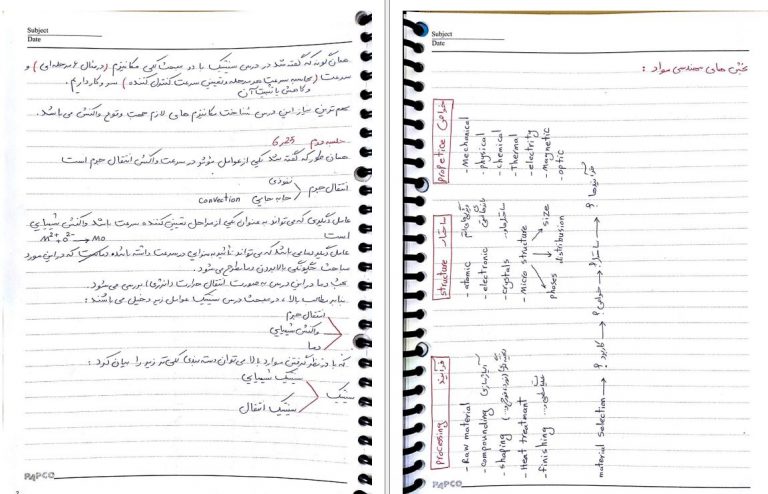 Subject
Date
همان گونه که گفته شد در درس سینتیک با دو مبحث کلی مکانیزم (در مثال 6 مرحله‌ای) و
سرعت (محاسبه سرعت هر مرحله و تعیین سرعت کنترل کننده) سر و کار داریم.
و کاهش یا تثبیت آن
مهم ترین نیاز این درس شناخت مکانیزم های لازم جهت وقوع واکنش می باشد.
جلسه دوم 6,25
همان طور که گفته شد یکی از عوامل موثر در سرعت واکنش انتقال جرم است
انتقال جرم
نفوذی
جابه جایی convection
عامل دیگری که می تواند به عنوان یکی از مراحل تعیین کننده سرعت باشد واکنش شیمیایی
است
M²⁺+O²⁻ → MO
عامل دیگر دمایی باشد که می تواند تأثیر به سزایی در سرعت داشته باشد که در این مورد
مباحث چگونگی بالا بردن دما مطرح می شود.
بحث دما در این درس به صورت انتقال حرارت (انرژی) بررسی می شود.
بنا به مطالب بالا، در مبحث درس سینتیک عوامل زیر دخیل می باشند:
انتقال جرم
واکنش شیمیایی
دما
که با در نظر گرفتن موارد بالا می توان دسته بندی کلی تر زیر را بیان کرد:
سینتیک
سینتیک شیمیایی
سینتیک انتقال
PAPCO
Subject
Date
بخش های مهندسی مواد:
خواص
propertice
- Mechanical
- physical
- chemical
- Thermal
- electrity
- magnetic
- optic
ساختار
structure
- atomic
- electronic
- crystals
- micro structure
size
distribusion
phases
فرآیند
processing
- Raw material
- compounding آلیاژسازی
- shaping
- Heat treatmant
- finishing
material Selection → کاربرد؟ → خواص؟ → ساختار؟ → فرآیندها؟
PAPCO